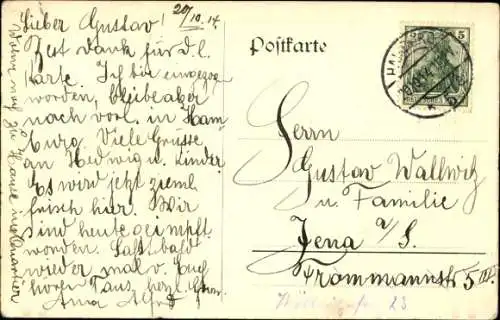 20/10.14
Lieber Gustav!
Best Dank für d. l.
Karte. Ich bin eingezog
worden, bleibe aber
noch vorl. in Ham
burg. Viele Grüsse
an Hedwig u. Kinder
Es wird jetzt zieml
frisch hier. Wir
sind heute geimpft
worden. Lasst bald
wieder mal v. Euch
hören Tausd herzl.
Alfred
Wohne noch zu Hause
Postkarte
HAMBURG
5
Herrn
Gustav Wallwitz
u. Familie
Jena a/S.
Frommannstr 5 III.
23